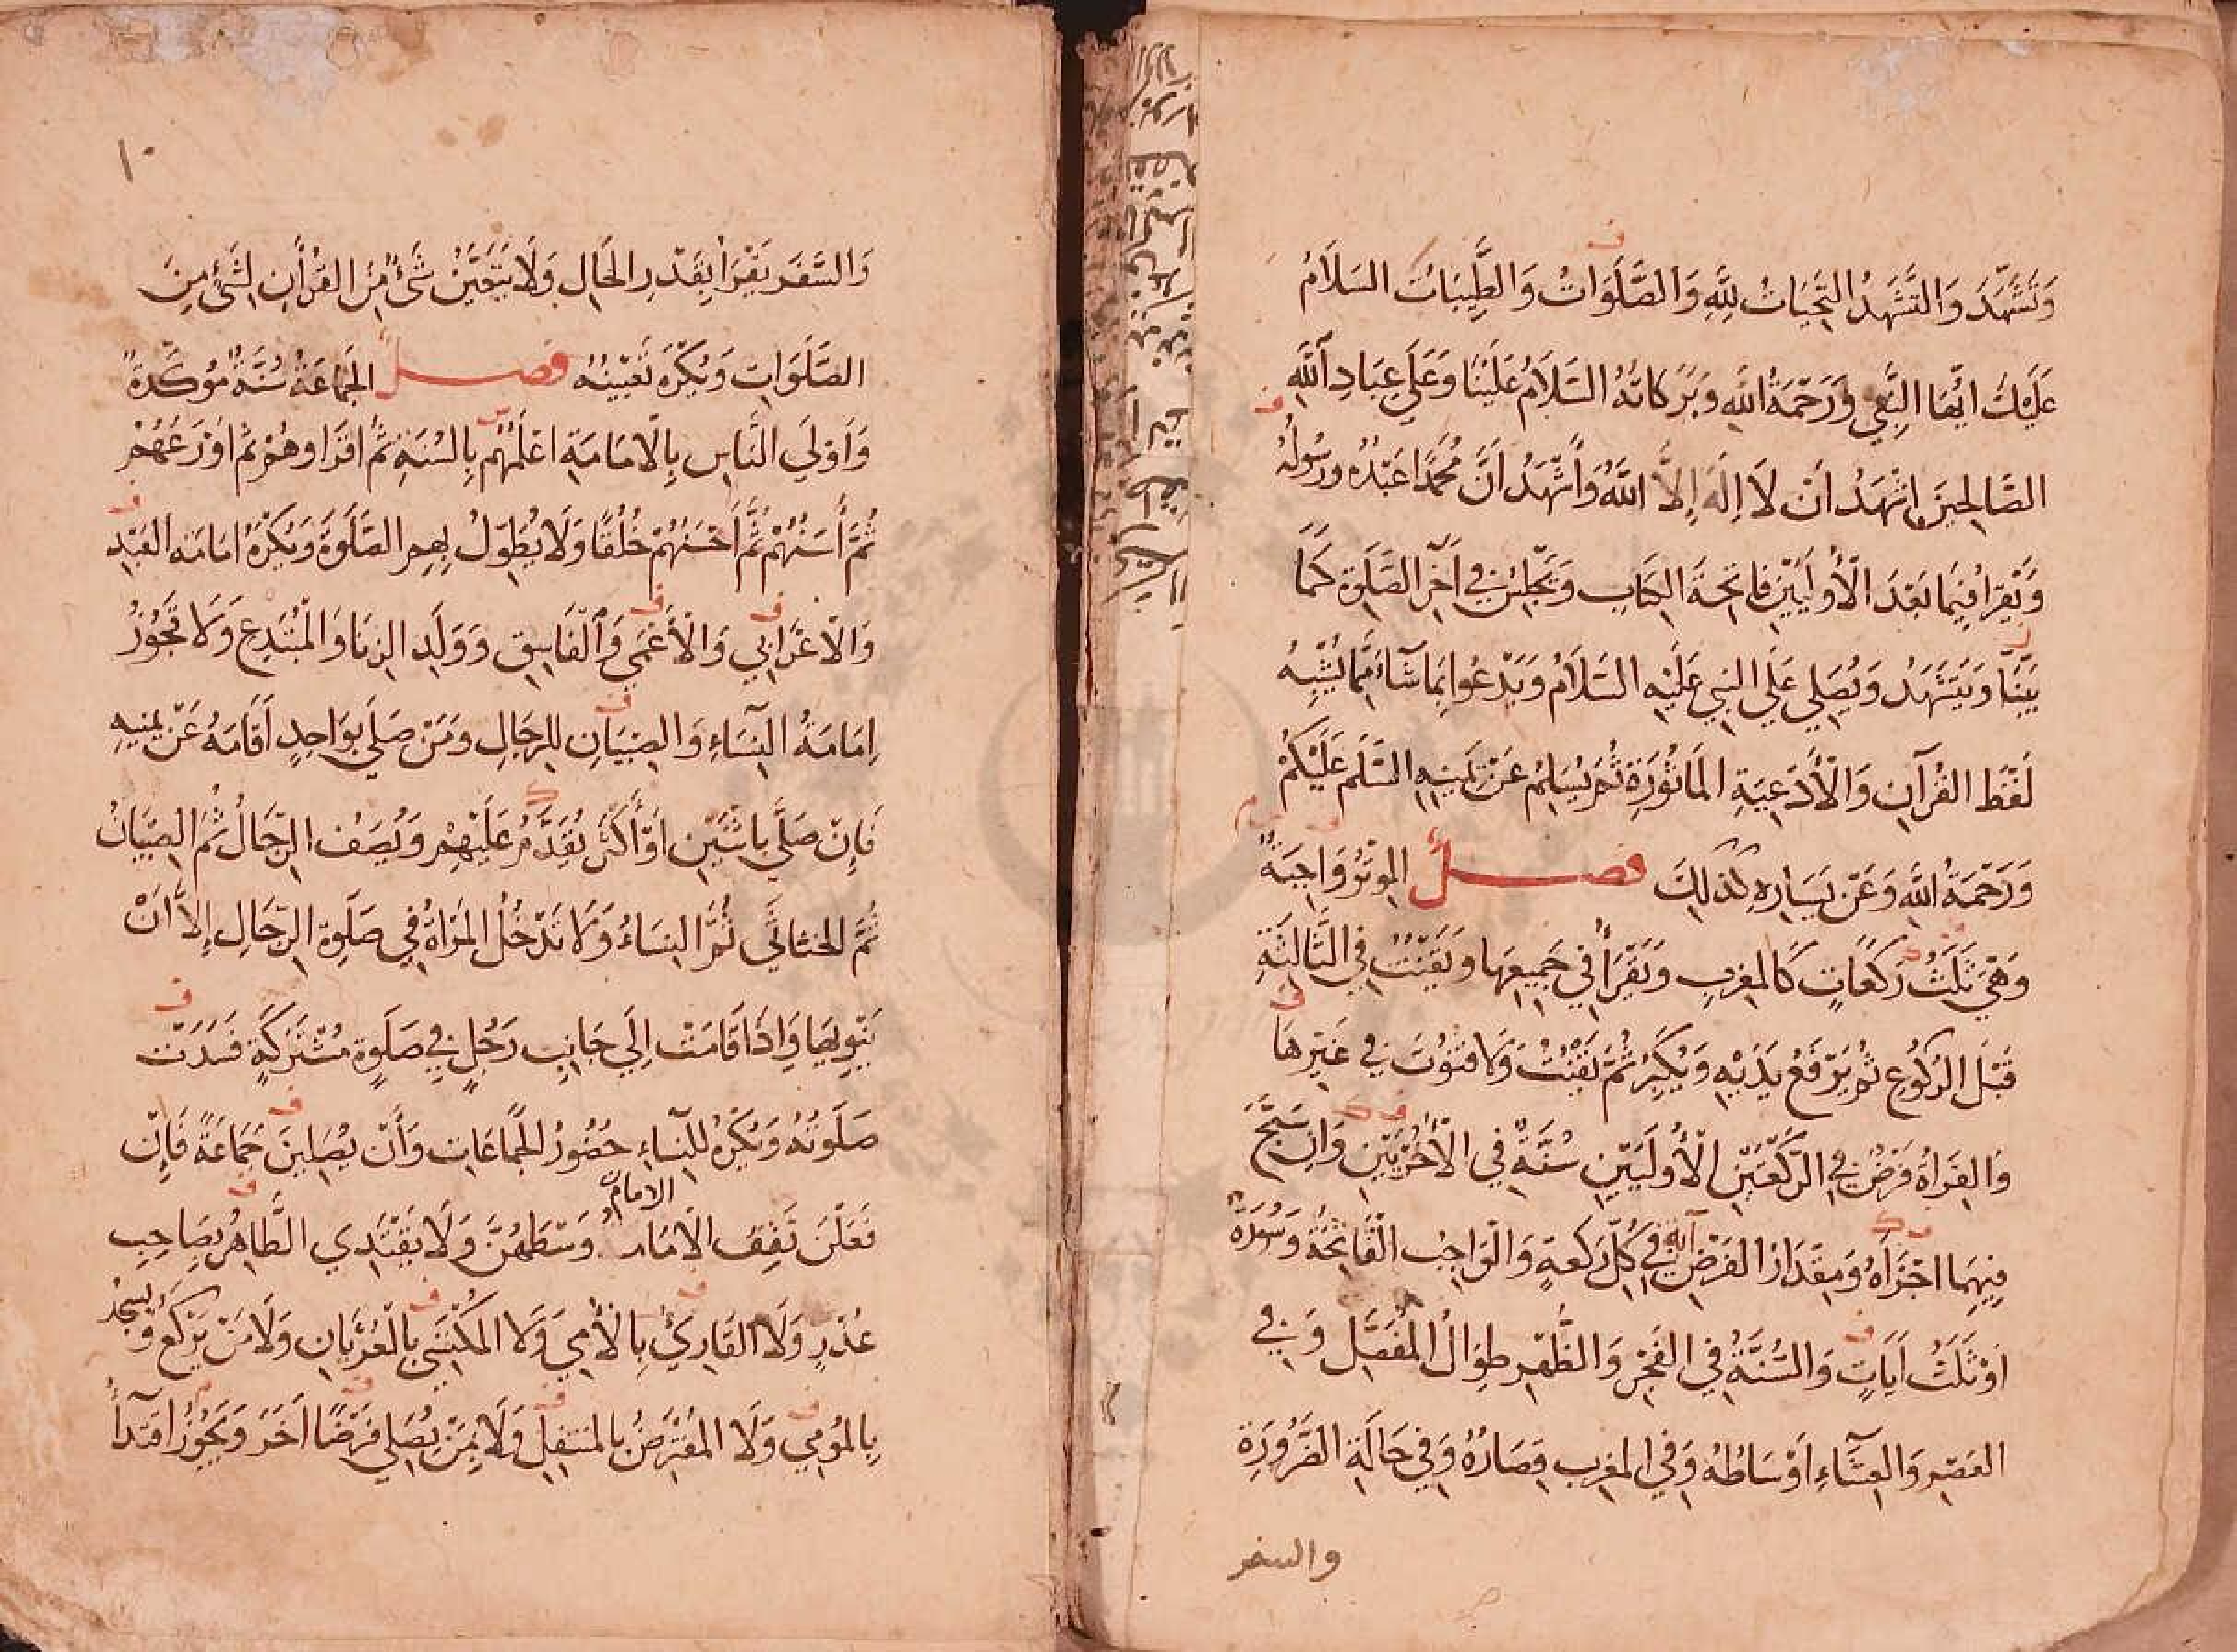 وَتَشَهَّدَ وَالتَّشَهُّدُ التَّحِيَاتُ لِلَّهِ وَالصَّلَوَاتُ وَالطَّيِّبَاتُ السَّلَامُ
عَلَيْكَ ايُّهَا النَّبِي وَرَحْمَةُ اللهِ وَبَرَكَاتُهُ السَّلَامُ عَلَيْنَا وَعَلَى عِبَادِ اللهِ
الصَّالِحِينَ اشْهَدُ انْ لَا إِلَهَ إِلَّا اللهُ وَأَشْهَدُ انَّ مُحَمَّدًا عَبْدُهُ وَرَسُولُهُ
وَيَقْرَا فِيمَا بَعْدَ الْأُولَيَيْنِ فَاتِحَةَ الكِتَابِ وَيَجْلِسُ فِي آخِرِ الصَّلَوةِ كَمَا
بَيَّنَّا وَيَتَشَهَّدُ وَيُصَلِّي عَلَى النَّبِي عَلَيْهِ السَّلَامُ وَيَدْعُوا بِمَا شَآءَ مِمَّا يُشْبِهُ
لَفْظَ القُرْآنِ وَالْأَدْعِيَةِ المَاثُورَةِ ثُمَّ يُسَلِّمُ عَنْ يَمِينِهِ السَّلَم عَلَيْكُمْ
وَرَحْمَةُ اللهِ وَعَنْ يَسَارِهِ كَذَلِكَ فصل الوِتْرُ وَاجِبَةٌ
وَهْيَ ثَلَثُ رَكَعَاتٍ كَالمَغْرِبِ وَيَقْرَأُ فِي جَمِيعِهَا وَيَقْنُتُ فِي الثَّالِثَةِ
قَبْلَ الرُّكُوعِ ثُمَّ يَرْفَعُ يَدَيْهِ وَيُكَبِّرُ ثُمَّ يَقْنُتُ وَلَا قُنُوتَ فِي غَيْرِهَا
وَالقِرَاةُ فَرْضٌ فِي الرَّكْعَتَيْنِ الْأُولَيَيْنِ سُنَّةٌ فِي الْأُخْرَيَيْنِ وَانْ سَبَّحَ
فِيهِمَا اجْزَاهُ وَمِقْدَارُ الفَرْضِ آية فِي كُلِّ رَكْعَةٍ وَالْوَاجِبُ الْفَاتِحَةُ وَسُورَةٌ
اوْ ثَلَثُ ايَاتٍ وَالسُّنَّةُ فِي الفَجْرِ وَالظُّهْرِ طِوَالُ المُفَصَّلِ وَفِي
العَصْرِ وَالعِشَآءِ اوْسَاطُهُ وَفِي المَغْرِبِ قِصَارُهُ وَفِي حَالَةِ الضَّرُورَةِ
والسفر
١٠
وَالسَّفَرِ يَقْرَأُ بِقَدْرِ الحَالِ وَلَا يَتَعَيَّنُ شَيْءٌ مِنَ القُرْأَنِ لِشَيْءٍ مِنَ
الصَّلَوَاتِ وَيُكْرَهُ تَعْيِينُهُ فصل الجَمَاعَةُ سُنَّةٌ مُؤَكَّدَةٌ
وَأَوْلَى النَّاسِ بِالْامَامَةِ اعْلَمُهُمْ بِالسُّنَّةِ ثُمَّ اقْرَاوهُمْ ثُمَّ اوْرَعُهُمْ
ثُمَّ أَسَنُّهُمْ ثُمَّ أَحْسَنُهُمْ خُلُقًا وَلَا يُطَوِّلُ بِهِمِ الصَّلَوةَ وَيُكْرَهُ امَامَة العَبْدِ
وَالْاعْرَابِي وَالْأَعْمَى وَالْفَاسِقِ وَوَلَدِ الزِّنَا وَالْمُبْتَدِعِ وَلَا تَجُوزُ
اِمَامَةُ النِّسَاءِ وَالصِّبْيَانِ لِلرِّجَالِ وَمَنْ صَلَّى بِوَاحِدٍ أَقَامَهُ عَنْ يَمِينِهِ
فَإِنْ صَلَّى بِاثْنَيْنِ اوْ أَكْثَرَ تَقَدَّمَ عَلَيْهِمْ وَيُصَفُّ الرِّجَالُ ثُمَّ الصِّبْيَانُ
ثُمَّ الخَنَاثَى ثُمَّ النِّسَاءُ وَلَا تَدْخُلُ المَرْاةُ فِي صَلَوةِ الرِّجَالِ إِلَّا انْ
يَنْوِيَهَا وَإِذَا قَامَتْ إِلَى جَانِبِ رَجُلٍ فِي صَلَوةٍ مُشْتَرَكَةٍ فَسَدَتْ
صَلَوتُهُ وَيُكْرَهُ لِلنِّسَاءِ حُضُورُ الجَمَاعَاتِ وَأَنْ يُصَلِّينَ جَمَاعَةً فَإِنْ
فَعَلْنَ تَقِفُ الْامَام الامام وَسْطَهُنَّ وَلَا يَقْتَدِي الطَّاهِرُ بِصَاحِبِ
عُذْرٍ وَلَا القَارِئُ بِالْأُمِّي وَلَا المُكْتَسِي بِالْعُرْيَانِ وَلَا مَنْ يَرْكَعُ وَيسجدُ
بِالمُومِي وَلَا المُفْتَرِضُ بِالمُتَنَفِّلِ وَلَا بِمَنْ يُصَلِّي فَرْضًا اخَرَ وَيَجُوزُ اقْتِدَآءُ